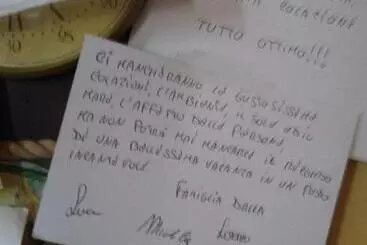 COLAZIONE
TUTTO OTTIMO!!!
CI MANCHERANNO LE GUSTOSISSIME
COLAZIONI, L'AMBIENTE, IL SOLE, IL
MARE, L'AFFETTO DELLE PERSONE,
MA NON POTRÀ MAI MANCARCI IL RICORDO
DI UNA BELLISSIMA VACANZA IN UN POSTO
INCANTEVOLE
FAMIGLIA
Luca
Lorenzo